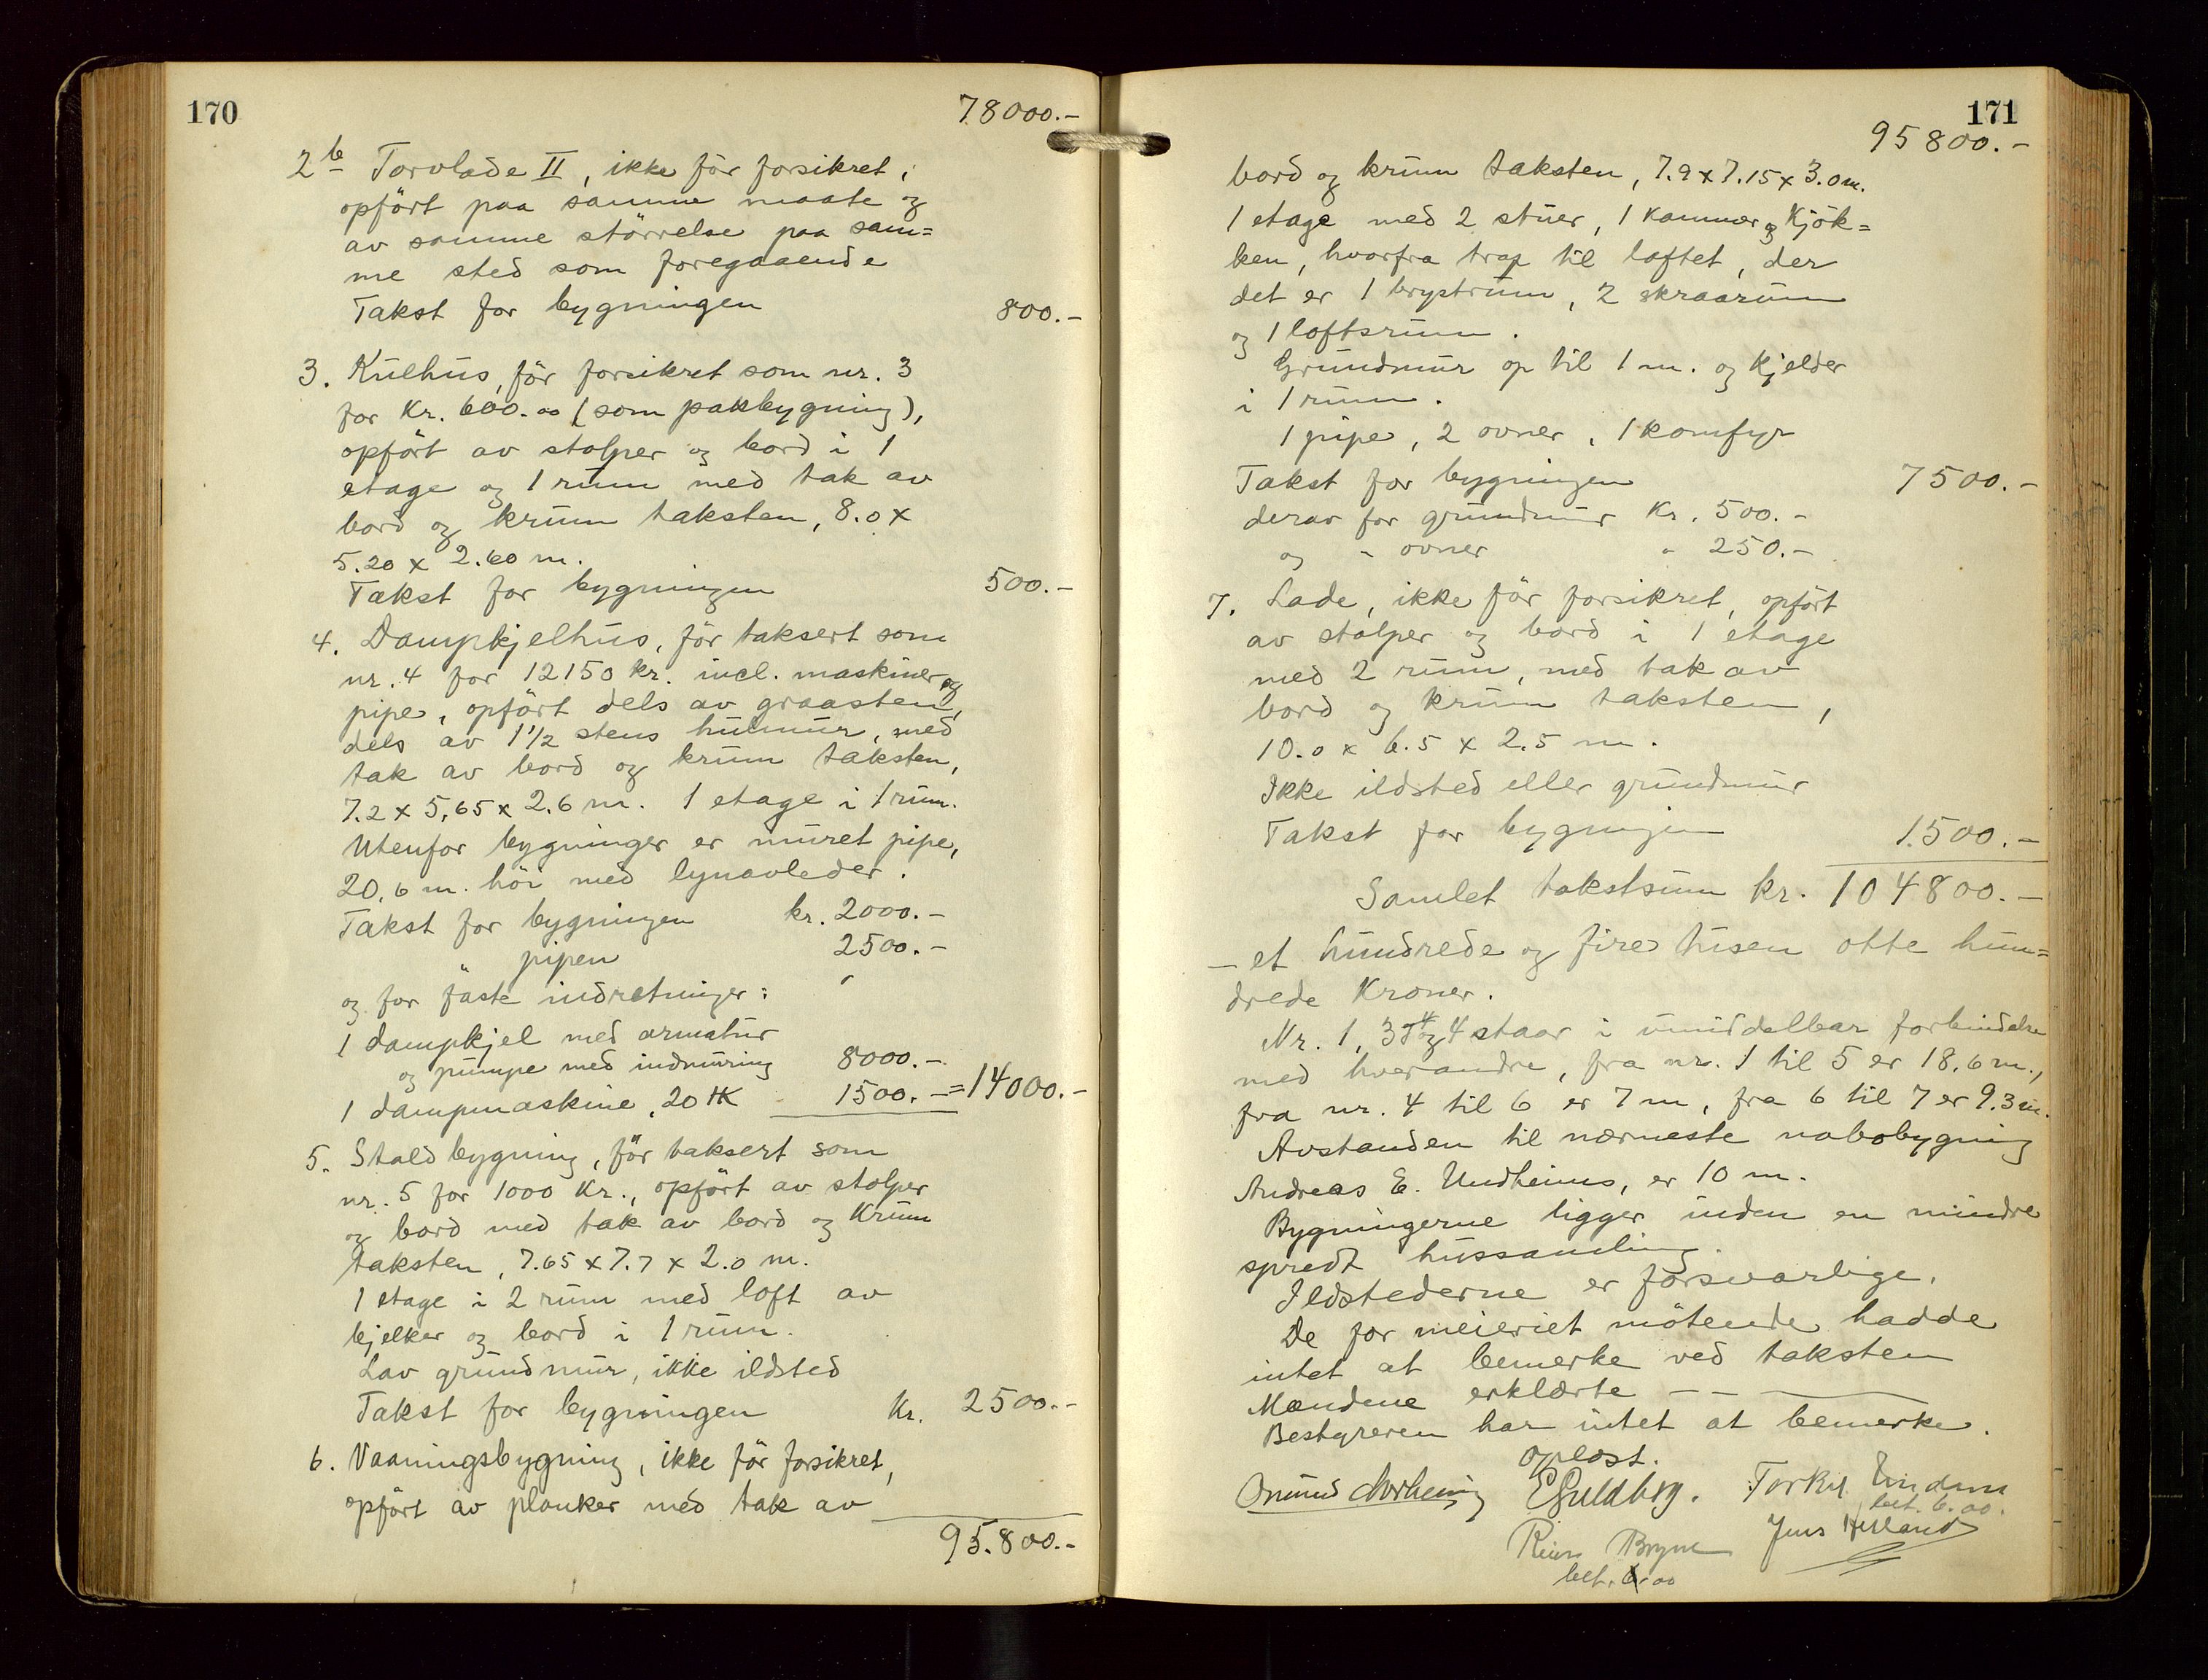 170
78000.-
2b Torvlade II, ikke för forsikret,
opfört paa samme maate og
av samme störrelse paa sam=
me sted som foregaaende
Takst for bygningen 800.-
3. Kulhus, för forsikret som nr. 3
for Kr. 600.00 (som pakbygning),
opfört av stolper og bord i 1
etage og 1 rum med tak av
bord og krum taksten, 8.0 x
5.20 x 2.60 m.
Takst for bygningen 500.-
4. Dampkjelhus, för taksert som
nr. 4 for 12150 kr. incl. maskiner og
pipe, opfört dels av graasten,
dels av 1½ stens hulmur, med
tak av bord og krum taksten,
7.2 x 5,65 x 2.6 m. 1 etage i 1 rum.
Utenfor bygninger er muret pipe,
20,6 m. höi med lynavleder.
Takst for bygningen kr. 2000.-
" pipen 2500.-
og for faste indretninger:
1 dampkjel med armatur
og pumpe med indmuring 8000.-
1 dampmaskine, 20 HK 1500.- = 14000.-
5. Staldbygning, för taksert som
nr. 5 for 1000 Kr., opfört av stolper
og bord med tak av bord og krum
taksten, 7.65 x 7.7 x 2.0 m.
1 etage i 2 rum med loft av
bjelker og bord i 1 rum.
Lav grundmur, ikke ildsted
Takst for bygningen Kr. 2500.-
6. Vaaningsbygning, ikke för forsikret,
opfört av planker med tak av
95.800.-
171
95800.-
bord og krum taksten, 7.9 x 7.15 x 3.0 m.
1 etage med 2 stuer, 1 kammer og Kjök=
ken, hvorfra trap til loftet, der
det er 1 brystrum, 2 skraarum
og 1 loftsrum.
Grundmur op til 1 m. og kjelder
i 1 rum.
1 pipe, 2 ovner, 1 komfyr
Takst for bygningen 7500.-
derav for grundmur Kr. 500.-
og " ovner " 250.-
7. Lade, ikke för forsikret, opfört
av stolper og bord i 1 etage
med 2 rum, med tak av
bord og krum taksten,
10.0 x 6.5 x 2.5 m.
Ikke ildsted eller grundmur
Takst for bygningen 1.500.-
Samlet takstsum kr. 104800.-
- et hundrede og fire tusen otte hun=
drede Kroner.
Nr. 1, 3 og 4 staar i umiddelbar forbindelse
med hverandre, fra nr. 1 til 5 er 18,6 m.,
fra nr. 4 til 6 er 7 m, fra 6 til 7 er 9.3 m.
Avstanden til nærmeste nabobygning
Andreas E. Undheims, er 10 m.
Bygningerne ligger inden en mindre
spredt hussamling.
Ildstederne er forsvarlige.
De for meieriet mötende hadde
intet at bemerke ved taksten
Mændene erklærte - - -
Bestyreren har intet at bemerke.
Oplæst.
Guldberg. Torkel
bet. 6.00.
Bryne Jens Helland
bet. 6.00